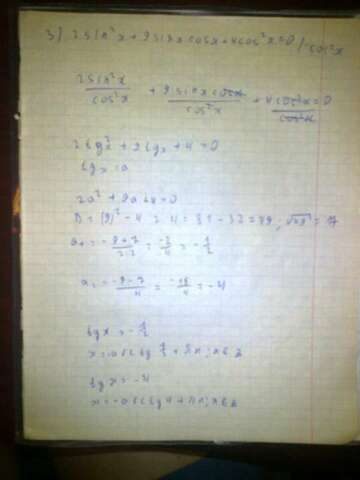 3) 2sin²x + 9sinxcosx + 4cos²x = 0 / cos²x
2sin²x/cos²x + 9sinxcosx/cos²x + 4cos²x/cos²x = 0
2tg²x + 9tgx + 4 = 0
tgx = a
2a² + 9a + 4 = 0
D = (9)² - 4·2·4 = 81 - 32 = 49, √49 = 7
a₁ = -9+7/2·2 = -2/4 = -1/2
a₂ = -9-7/4 = -16/4 = -4
tgx = -1/2
x = -arctg 1/2 + πn; n∈Z
tgx = -4
x = -arctg4 + πn; n∈Z